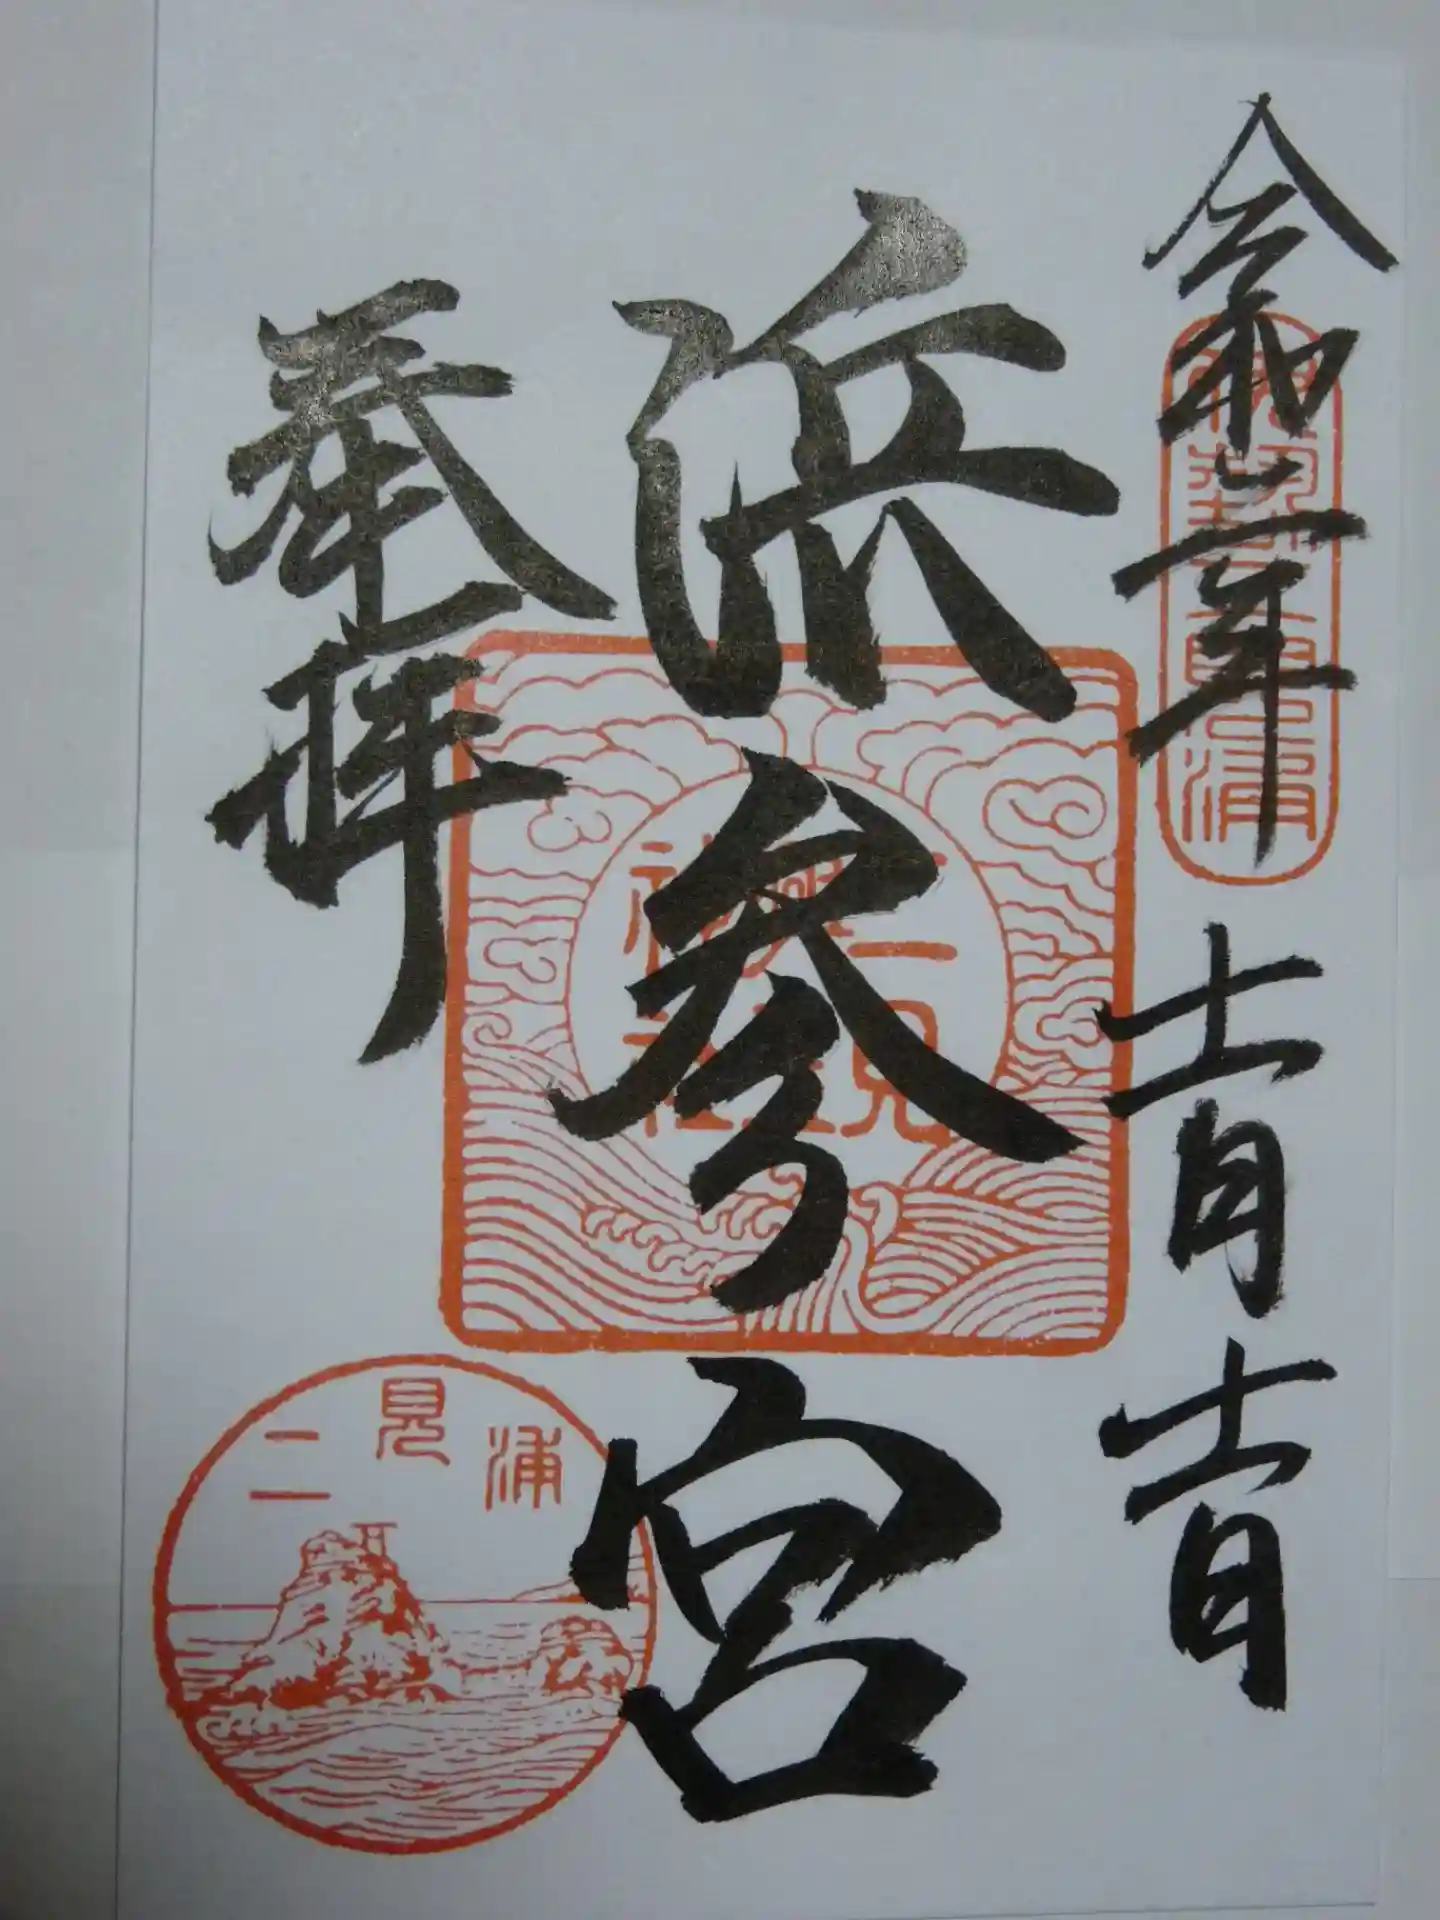 令和二年十一月十一日
伊勢二見浦
浜参宮
二見
興玉
神社
奉拝
二見浦